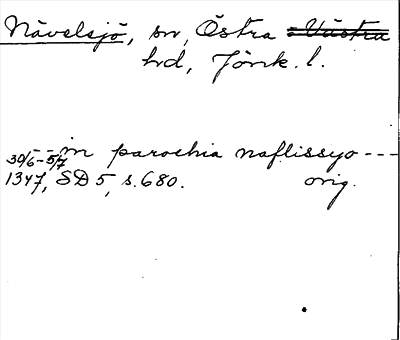 Nävelsjö, sn, Östra - Västra
hd, Jönk. l.
- - in parochia naflissyo - - -
30/6-5/7
1347, SD 5, s. 680. orig.